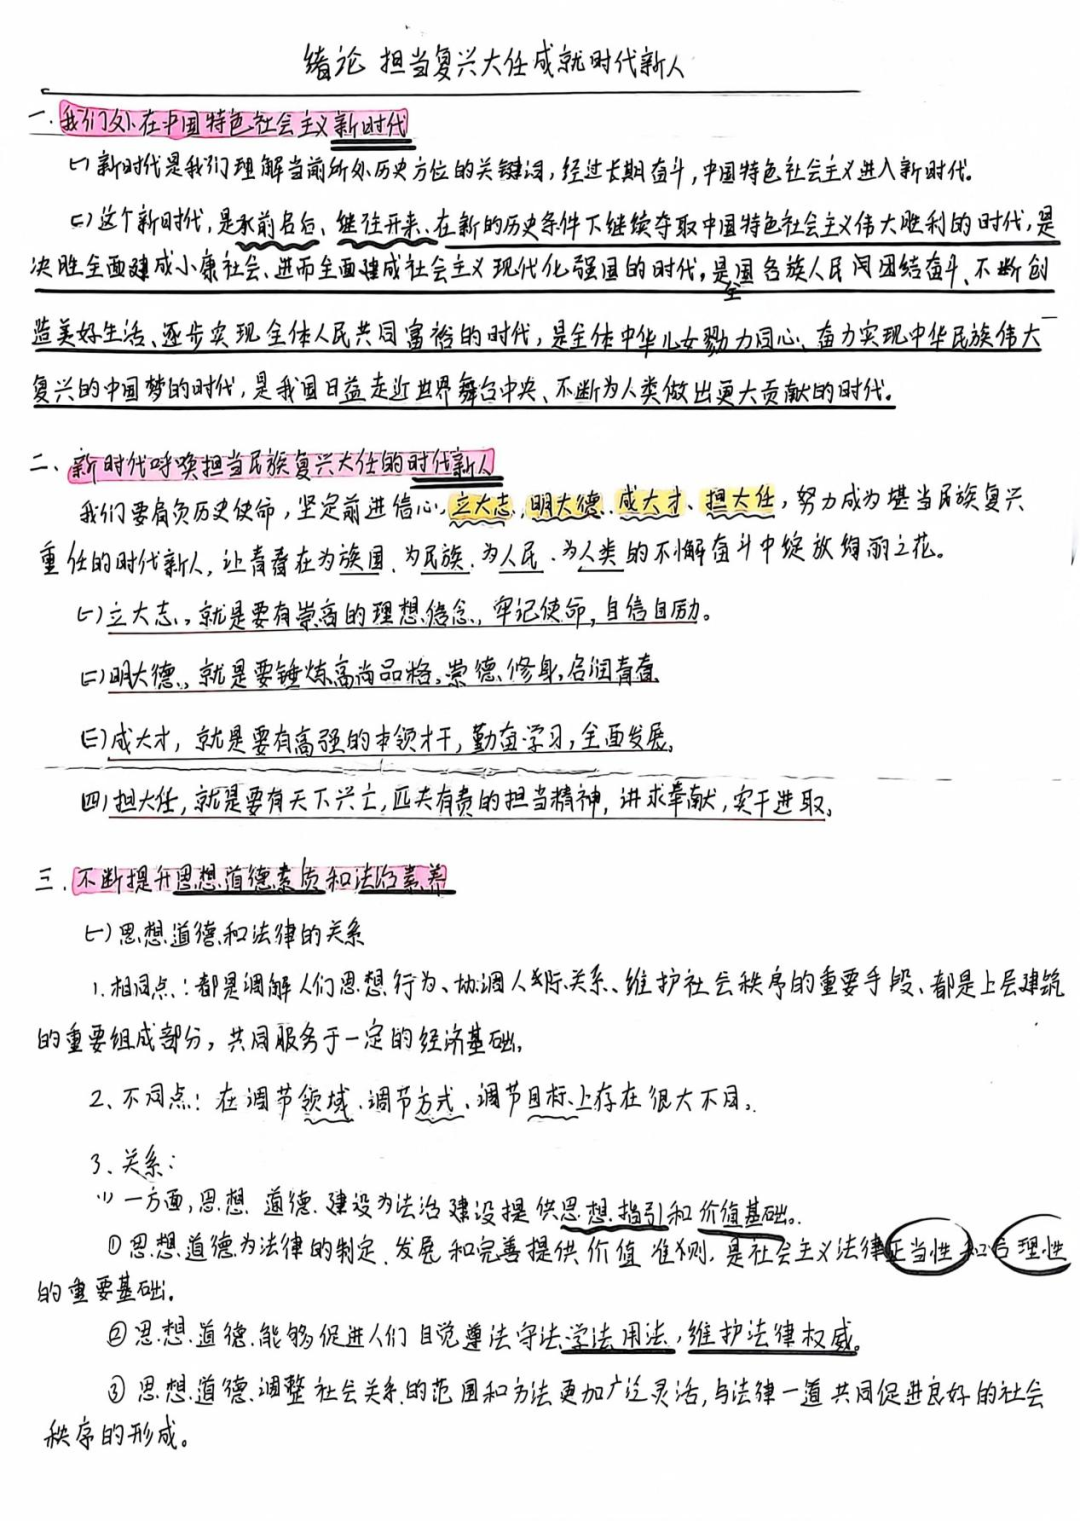 绪论 担当复兴大任成就时代新人
一.我们处在中国特色社会主义新时代
(一)新时代是我们理解当前所处历史方位的关键词,经过长期奋斗,中国特色社会主义进入新时代.
(二)这个新时代,是承前启后、继往开来、在新的历史条件下继续夺取中国特色社会主义伟大胜利的时代,是
决胜全面建成小康社会、进而全面建成社会主义现代化强国的时代,是全国各族人民团结奋斗、不断创
造美好生活、逐步实现全体人民共同富裕的时代,是全体中华儿女勠力同心、奋力实现中华民族伟大
复兴的中国梦的时代,是我国日益走近世界舞台中央、不断为人类做出更大贡献的时代.
二、新时代呼唤担当民族复兴大任的时代新人
我们要肩负历史使命,坚定前进信心,立大志、明大德、成大才、担大任,努力成为堪当民族复兴
重任的时代新人,让青春在为族国、为民族、为人民、为人类的不懈奋斗中绽放绚丽之花。
(一)立大志,就是要有崇高的理想信念,牢记使命,自信自励。
(二)明大德,就是要锤炼高尚品格,崇德修身,启润青春.
(三)成大才,就是要有高强的本领才干,勤奋学习,全面发展.
(四)担大任,就是要有天下兴亡,匹夫有责的担当精神,讲求奉献,实干进取.
三.不断提升思想道德素质和法治素养
(一)思想道德和法律的关系
1.相同点:都是调解人们思想行为、协调人际关系、维护社会秩序的重要手段、都是上层建筑
的重要组成部分,共同服务于一定的经济基础.
2、不同点:在调节领域、调节方式、调节目标上存在很大不同.
3、关系:
(1)一方面,思想道德建设为法治建设提供思想指引和价值基础.
①思想道德为法律的制定、发展和完善提供价值准则,是社会主义法律正当性和合理性
的重要基础.
②思想道德能够促进人们自觉遵法守法学法用法,维护法律权威.
③思想道德调整社会关系的范围和方法更加广泛灵活,与法律一道共同促进良好的社会
秩序的形成。